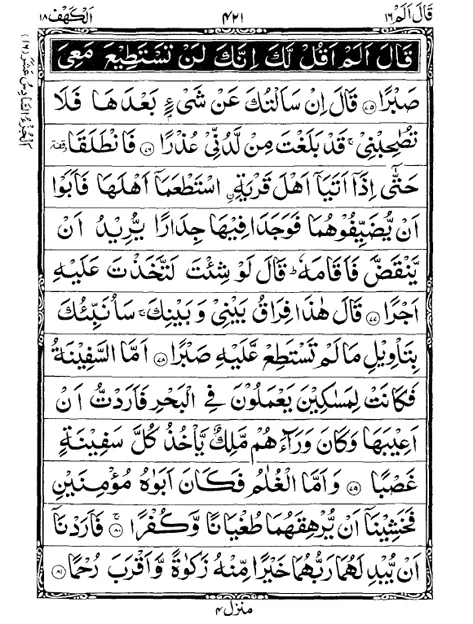 قَالَ اَلَم ١٦ ٤٢١ اَلْكَهْف ١٨
قَالَ اَلَمْ اَقُلْ لَّكَ اِنَّكَ لَنْ تَسْتَطِيْعَ مَعِيَ
صَبْرًا ﴿٧٥﴾ قَالَ اِنْ سَاَلْتُكَ عَنْ شَيْءٍۭ بَعْدَهَا فَلَا
تُصٰحِبْنِيْ ۚ قَدْ بَلَغْتَ مِنْ لَّدُنِّيْ عُذْرًا ﴿٧٦﴾ فَانْطَلَقَا وقفة
حَتّٰۤى اِذَاۤ اَتَيَاۤ اَهْلَ قَرْيَةِۨ اسْتَطْعَمَاۤ اَهْلَهَا فَاَبَوْا
اَنْ يُّضَيِّفُوْهُمَا فَوَجَدَا فِيْهَا جِدَارًا يُّرِيْدُ اَنْ
يَّنْقَضَّ فَاَقَامَهٗ ؕ قَالَ لَوْ شِئْتَ لَتَّخَذْتَ عَلَيْهِ
اَجْرًا ﴿٧٧﴾ قَالَ هٰذَا فِرَاقُ بَيْنِيْ وَ بَيْنِكَ ۚ سَاُنَبِّئُكَ
بِتَاْوِيْلِ مَا لَمْ تَسْتَطِعْ عَّلَيْهِ صَبْرًا ﴿٧٨﴾ اَمَّا السَّفِيْنَةُ
فَكَانَتْ لِمَسٰكِيْنَ يَعْمَلُوْنَ فِي الْبَحْرِ فَاَرَدْتُّ اَنْ
اَعِيْبَهَا وَكَانَ وَرَآءَهُمْ مَّلِكٌ يَّاْخُذُ كُلَّ سَفِيْنَةٍ
غَصْبًا ﴿٧٩﴾ وَاَمَّا الْغُلٰمُ فَكَانَ اَبَوٰهُ مُؤْمِنَيْنِ
فَخَشِيْنَاۤ اَنْ يُّرْهِقَهُمَا طُغْيَانًا وَّكُفْرًا ﴿٨٠﴾ فَاَرَدْنَاۤ
اَنْ يُّبْدِلَهُمَا رَبُّهُمَا خَيْرًا مِّنْهُ زَكٰوةً وَّاَقْرَبَ رُحْمًا ﴿٨١﴾
منزل ٤
اَلْجُزْءُ السَّادِسُ عَشَرَ (١٦)